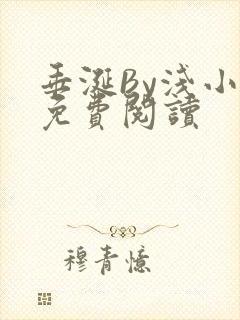 垂涎By淺小
免費閱讀
穆青憶